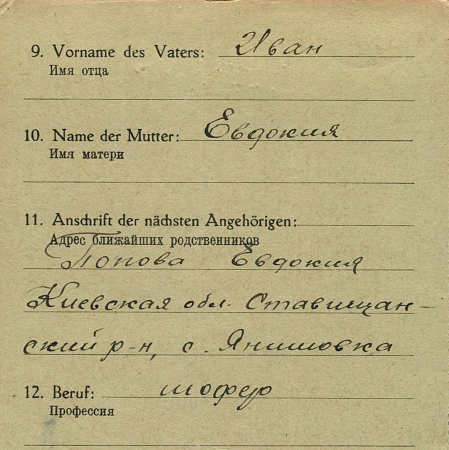 9. Vorname des Vaters: Иван
Имя отца
10. Name der Mutter: Евдокия
Имя матери
11. Anschrift der nächsten Angehörigen:
Адрес ближайших родственников
Попова Евдокия
Киевская обл. Ставищан-
ский р-н, с. Янишовка
12. Beruf: шофер
Профессия